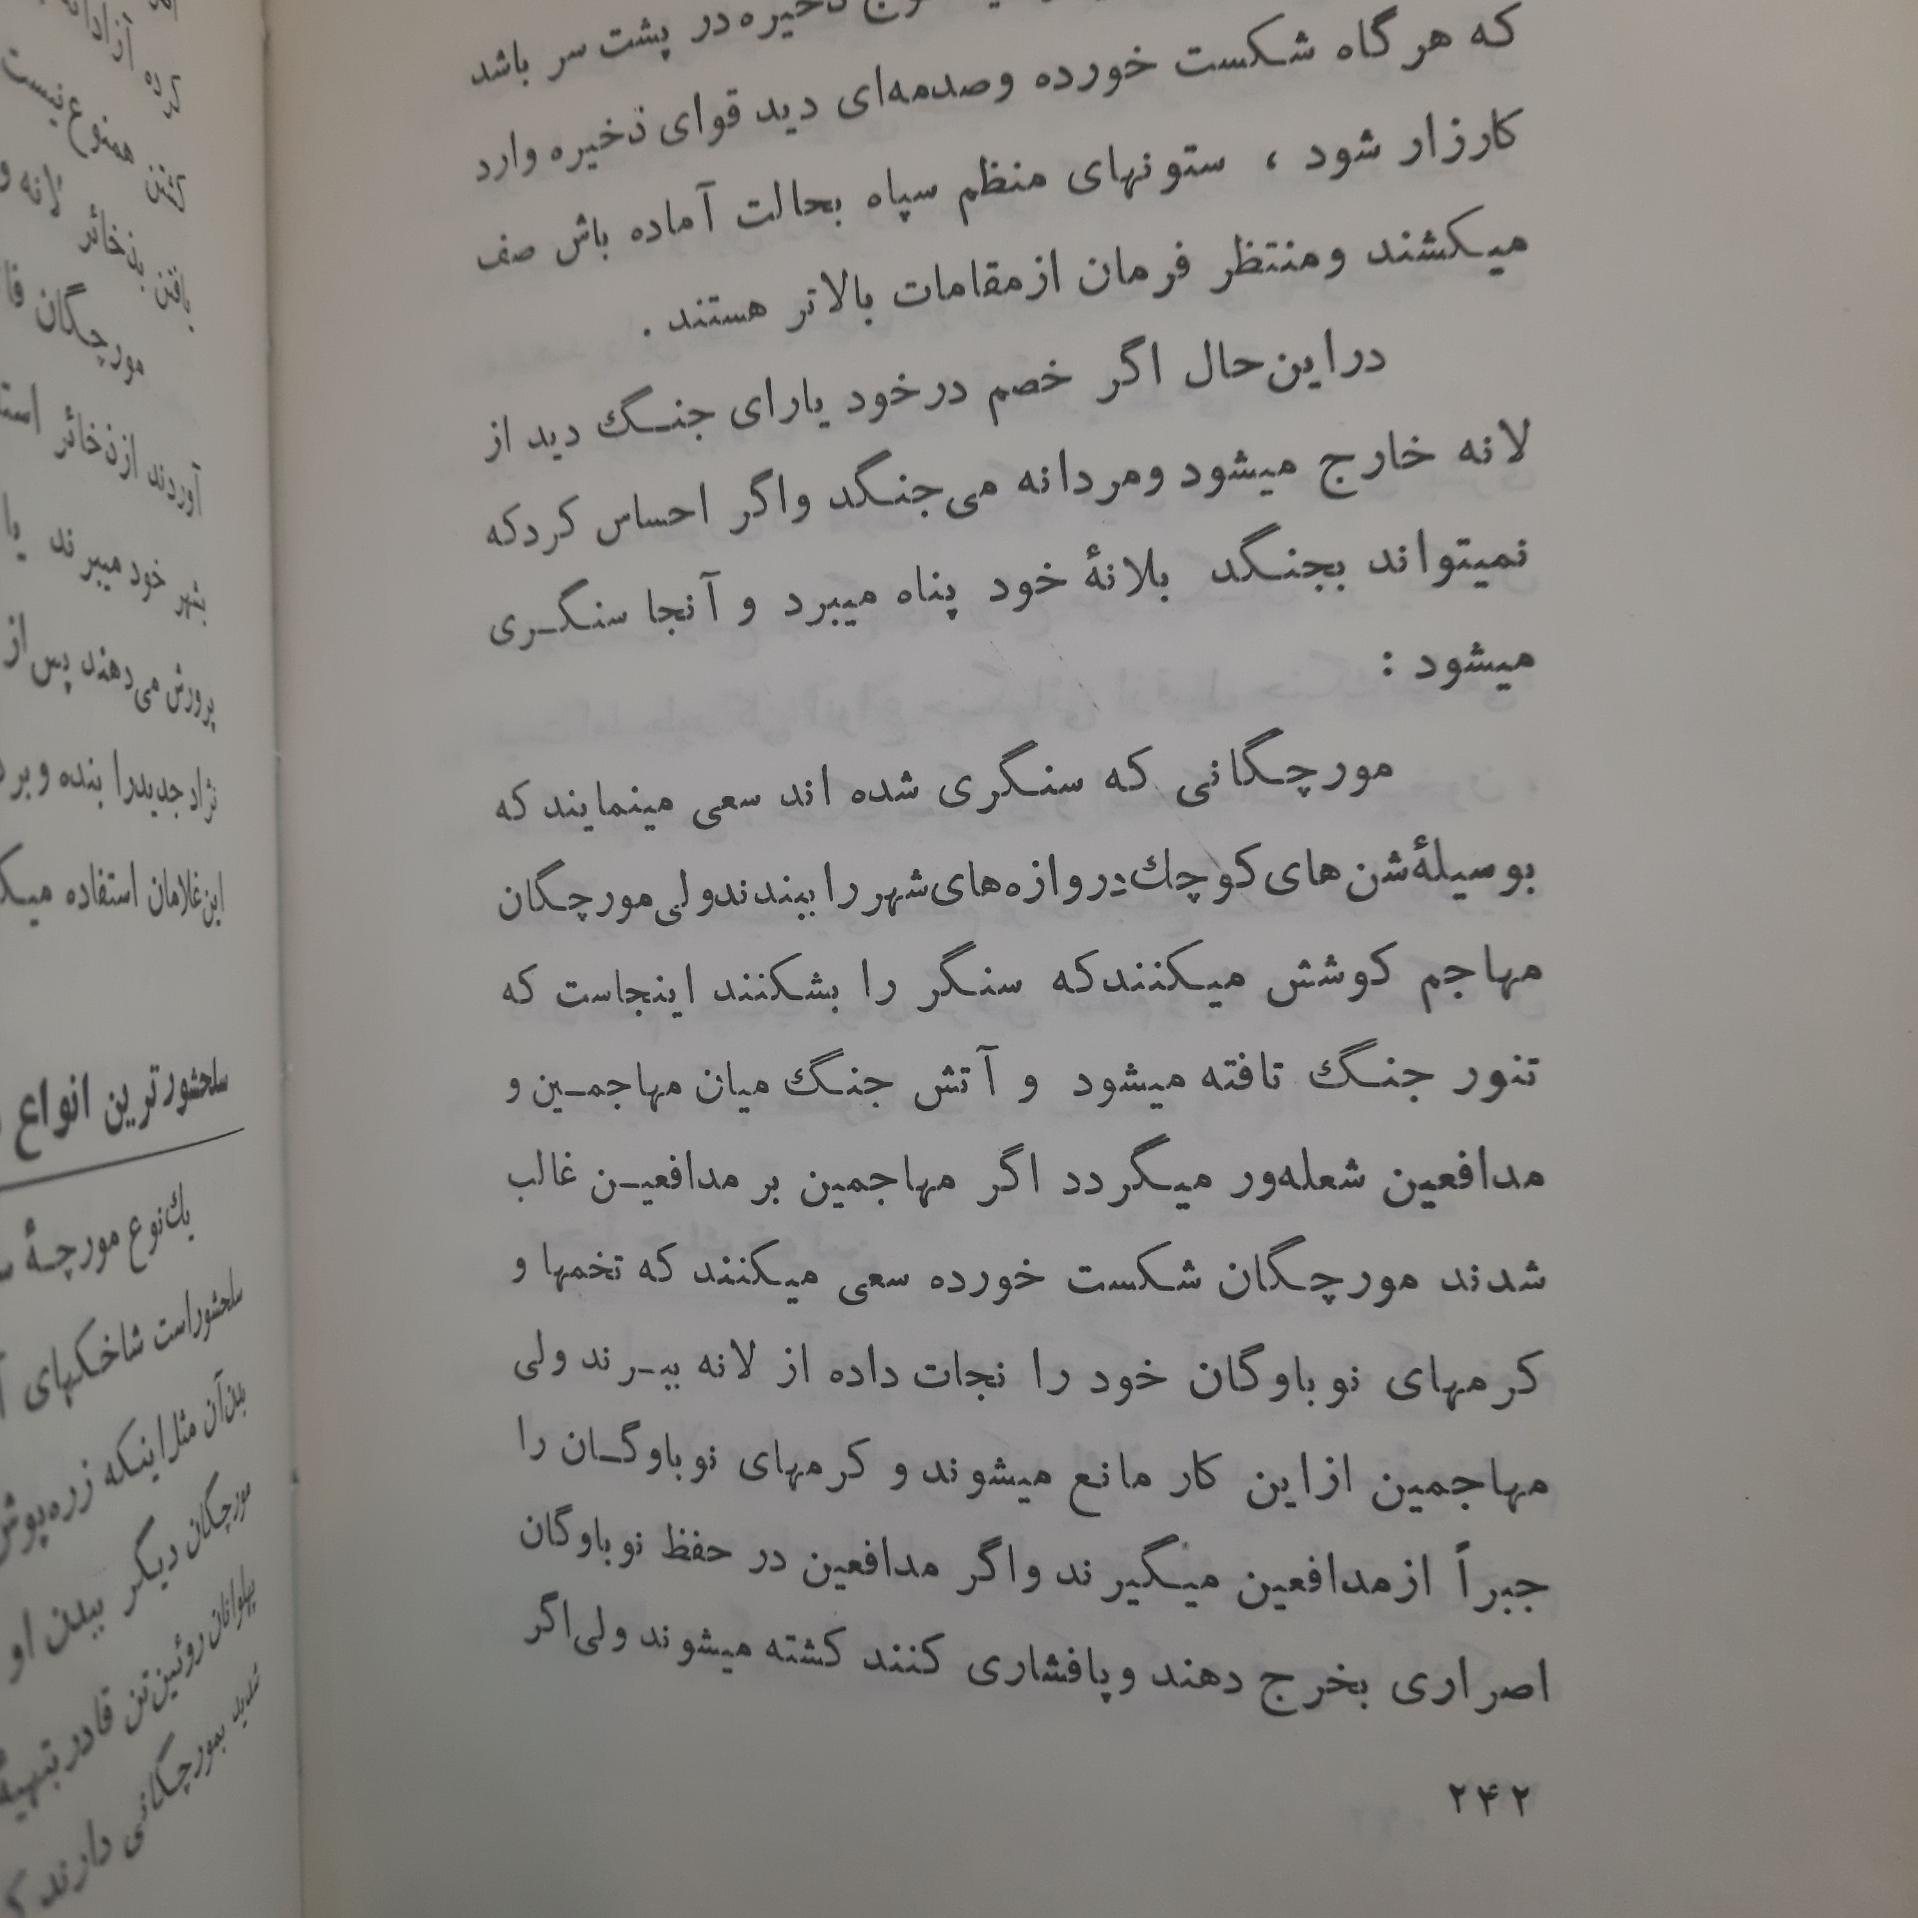 ذخیره در پشت سر باشد
که هرگاه شکست خورده وصدمه‌ای دید قوای ذخیره وارد
کارزار شود ، ستونهای منظم سپاه بحالت آماده باش صف
میکشند ومنتظر فرمان ازمقامات بالاتر هستند .
دراین‌حال اگر خصم درخود یارای جنگ دید از
لانه خارج میشود ومردانه می‌جنگد واگر احساس کردکه
نمیتواند بجنگد بلانهٔ خود پناه میبرد و آنجا سنگری
میشود :
مورچگانی که سنگری شده اند سعی مینمایند که
بوسیلهٔ شن‌های کوچك دروازه‌های شهر را ببندند ولی مورچگان
مهاجم کوشش میکنندکه سنگر را بشکنند اینجاست که
تنور جنگ تافته میشود و آتش جنگ میان مهاجمین و
مدافعین شعله‌ور میگردد اگر مهاجمین بر مدافعین غالب
شدند مورچگان شکست خورده سعی میکنند که تخمها و
کرمهای نوباوگان خود را نجات داده از لانه ببرند ولی
مهاجمین ازاین کار مانع میشوند و کرمهای نوباوگان را
جبراً ازمدافعین میگیرند واگر مدافعین در حفظ نوباوگان
اصراری بخرج دهند وپافشاری کنند کشته میشوند ولی‌اگر
۲۴۲
کرده آزادانه
کشتن همنوع نیست
یافتن بذخائر لانه و
مورچگان
آوردند ازذخائر
بشهر خود میبرند یا
پرورش می‌دهند پس از
نژاد جدیدرا بنده و
این‌غلامان استفاده
سلحشورترین انواع
یك‌نوع مورچهٔ
سلحشوراست شاخکهای
بدن‌آن مثل‌اینکه زره‌پوش
مورچگان دیگر ببدن او
پهلوانان روئین‌تن قادر بتهیهٔ
شدید بمورچگانی دارند